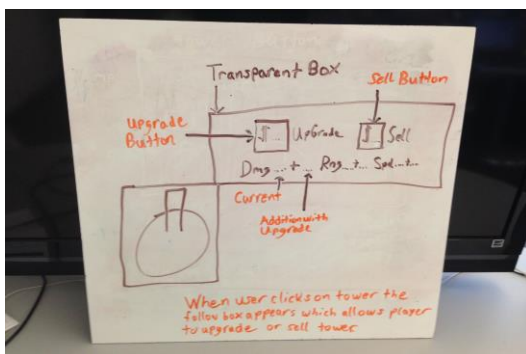 Transparent Box
Sell Button
Upgrade
Button
$... UpGrade
$... Sell
Dmg ... + ... Rng...+... Spd...+...
Current
Addition with
Upgrade
When user clicks on tower the
follow box appears which allows player
to upgrade or sell tower